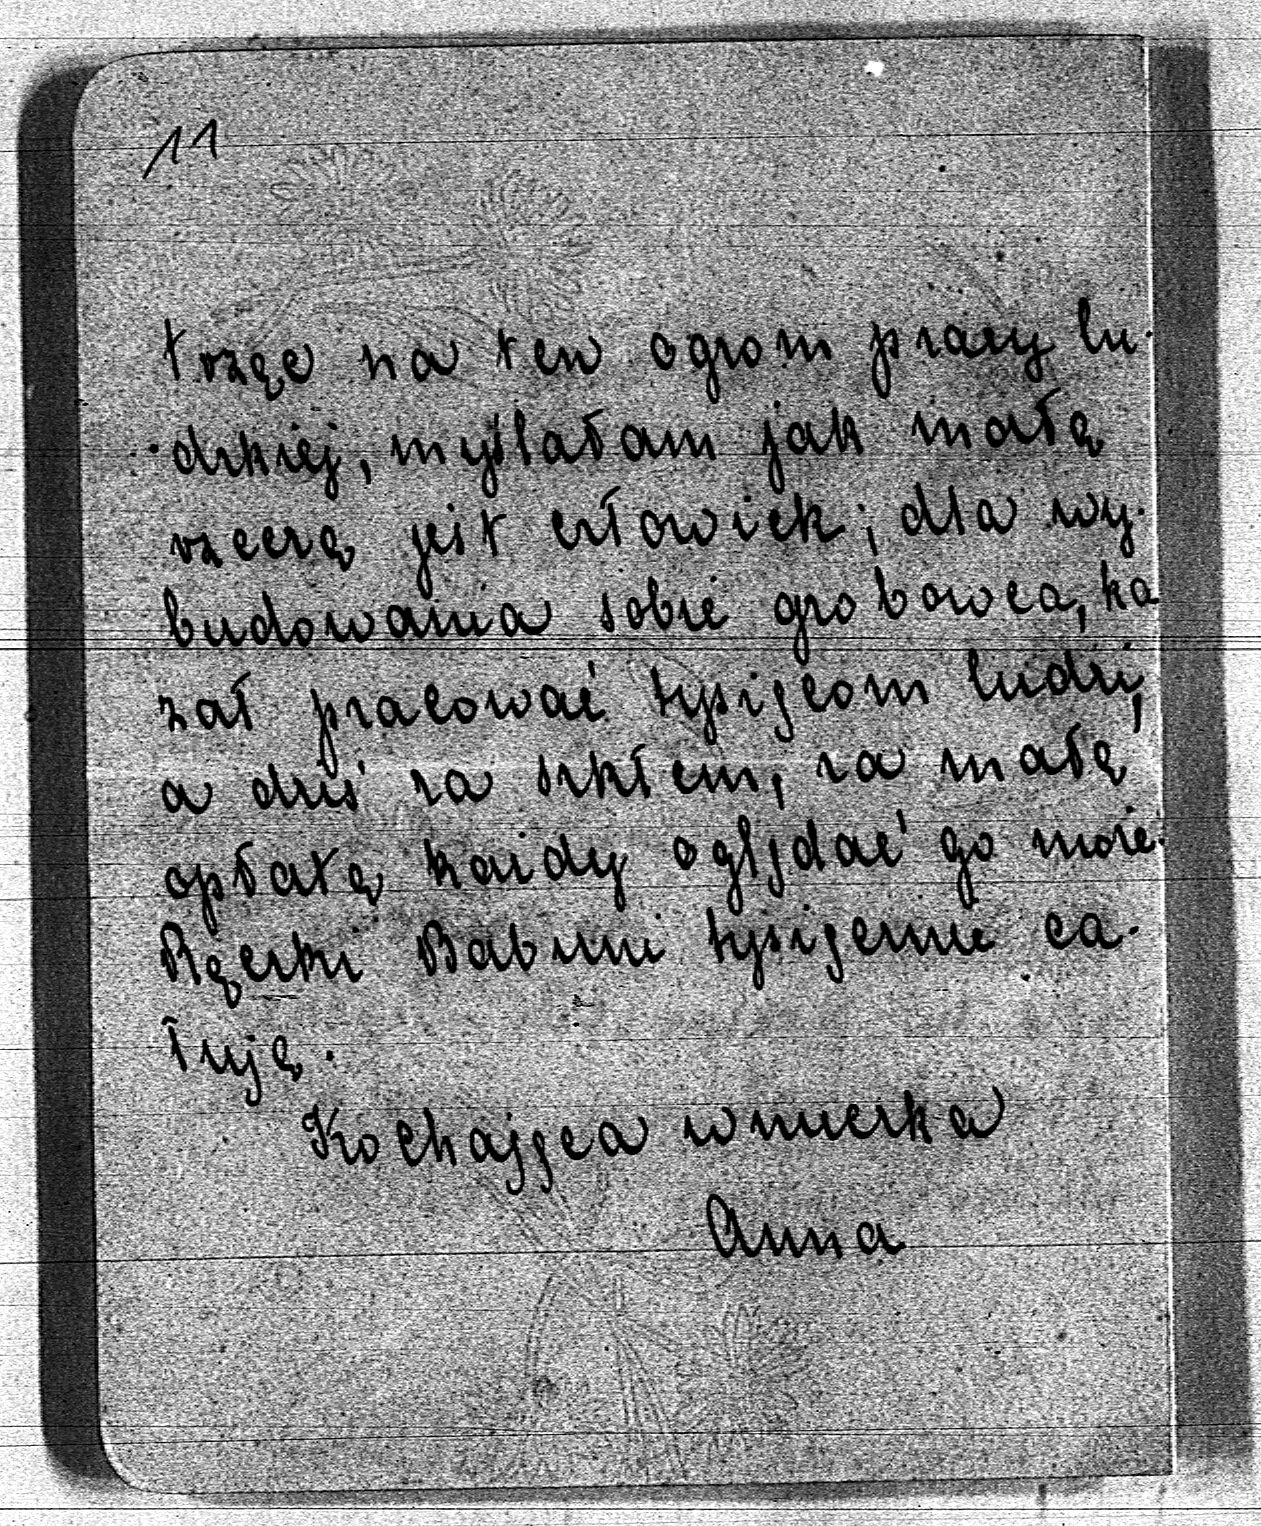 11
trząc na ten ogrom pracy lu-
dzkiej, myślałam jak małą
rzeczą jest człowiek; dla wy-
budowania sobie grobowca, ka
zał pracować tysiącom ludzi,
a dziś za szkłem, za małą
opłatą każdy oglądać go może.
Rączki Babuni tysiącznie ca-
łuję.
Kochająca wnuczka
Anna